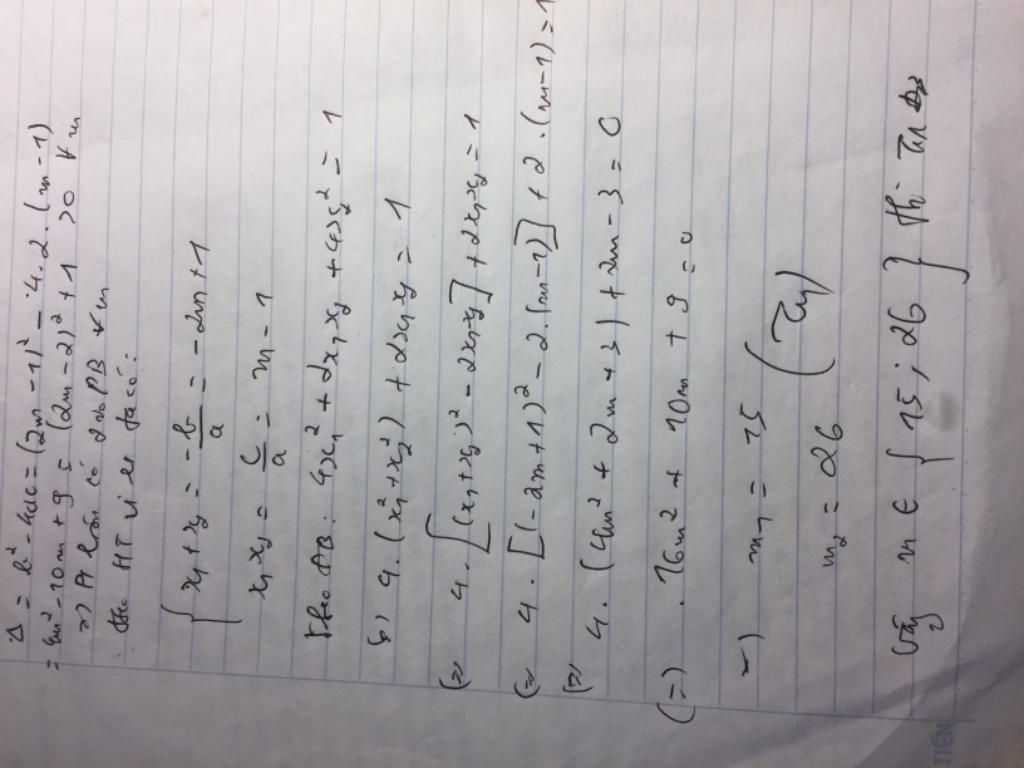 Δ = b² - 4ac = (2m - 1)² - 4.2.(m - 1)
= 4m² - 10m + 9 = (2m - 2)² + 1 > 0 ∀m
=> Pt luôn có 2 no PB ∀m
theo HT vi et ta có:
{ x₁ + x₂ = -b/a = -2m + 1
x₁x₂ = c/a = m - 1
theo ĐB: 4x₁² + 2x₁x₂ + 4x₂² = 1
(=) 4.(x₁² + x₂²) + 2x₁x₂ = 1
(=) 4.[(x₁+x₂)² - 2x₁x₂] + 2x₁x₂ = 1
(=) 4.[(-2m+1)² - 2.(m-1)] + 2.(m-1) = 1
(=) 4.(4m² + 2m + 3) + 2m - 3 = 0
(=) 16m² + 10m + 9 = 0
=) m₁ = 15
m₂ = 26 (TM)
Vậy m ∈ { 15 ; 26 } thì TM
TIẾN